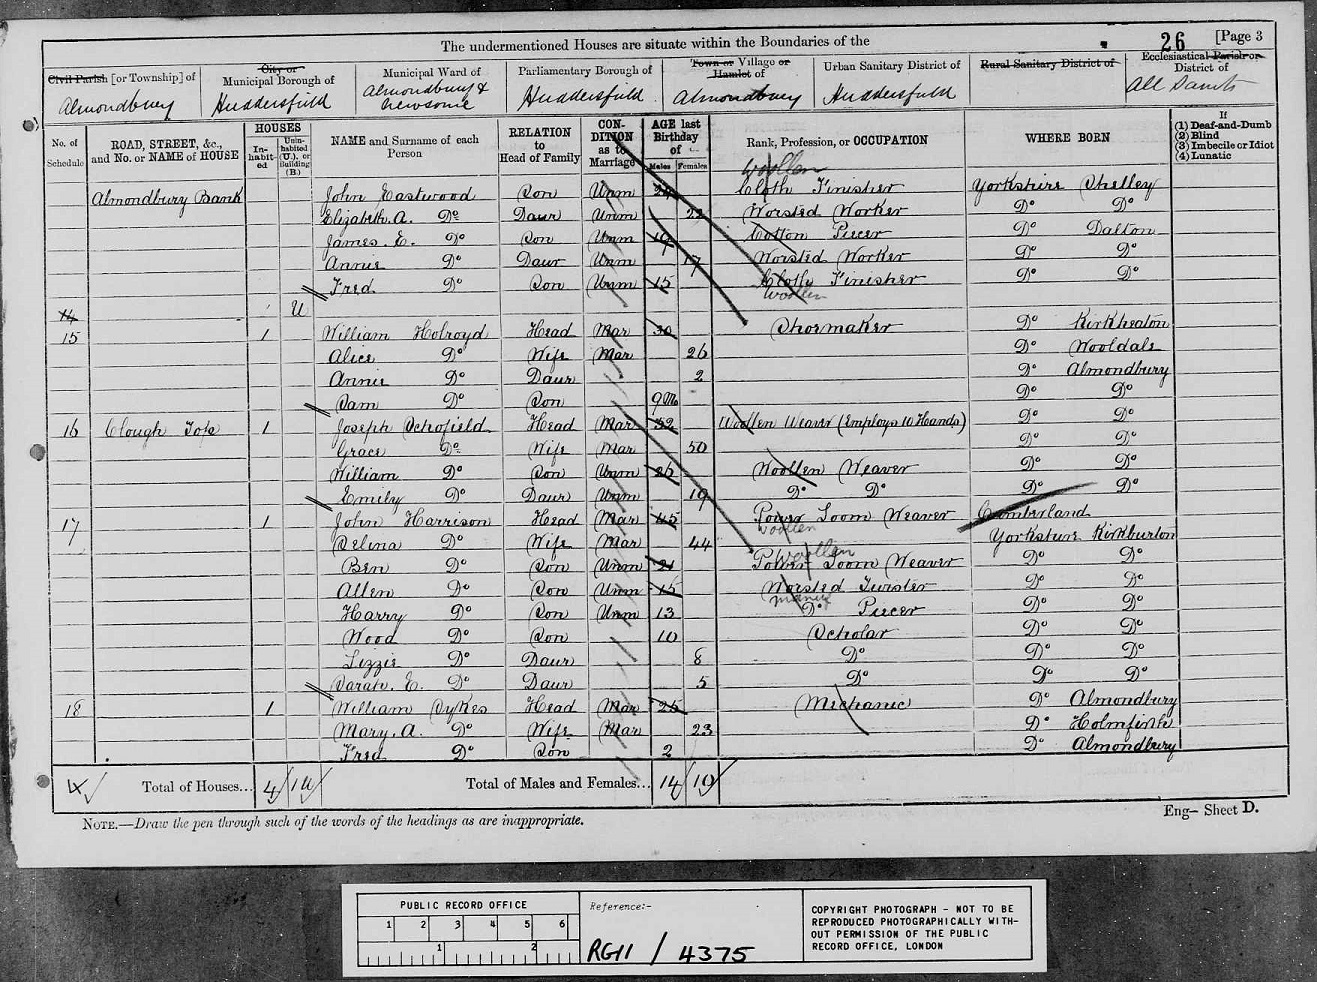 The undermentioned Houses are situate within the Boundaries of the
26 [Page 3
Civil Parish [or Township] of
City or Municipal Borough of
Municipal Ward of
Parliamentary Borough of
Town or Village or Hamlet of
Urban Sanitary District of
Rural Sanitary District of
Ecclesiastical Parish or District of
Almondbury
Huddersfield
Almondbury & Newsome
Huddersfield
Almondbury
Huddersfield
All Saints
No. of Schedule
ROAD, STREET, &c., and No. or NAME of HOUSE
HOUSES
In-habit-ed
Unin-habited (U.), or Building (B.)
NAME and Surname of each Person
RELATION to Head of Family
CON-DITION as to Marriage
AGE last Birthday of
Males Females
Rank, Profession, or OCCUPATION
WHERE BORN
If
(1) Deaf-and-Dumb
(2) Blind
(3) Imbecile or Idiot
(4) Lunatic
Woollen
Almondbury Bank John Eastwood Son Unm Cloth Finisher Yorkshire Shelley
Elizabeth A. Do Daur Unm 22 Worsted Worker Do Do
James. E. Do Son Unm 19 Cotton Piecer Do Dalton
Annie Do Daur Unm 17 Worsted Worker Do Do
Fred Do Son Unm 15 Cloth Finisher Do Do
Woollen
14 U
15 1 William Holroyd Head Mar 30 Shoemaker Do Kirkheaton
Alice Do Wife Mar 26 Do Wooldale
Annie Do Daur 2 Do Almondbury
Sam Do Son 9 Mo Do Do
16 Clough Top 1 Joseph Schofield Head Mar 52 Woollen Weaver (Employs 10 Hands) Do Do
Grace Do Wife Mar 50 Do Do
William Do Son Unm 26 Woollen Weaver Do Do
Emily Do Daur Unm 19 Do Do Do Do
17 1 John Harrison Head Mar 45 Power Loom Weaver Cumberland
Woollen
Selina Do Wife Mar 44 Yorkshire Kirkburton
Woollen
Ben Do Son Unm 21 Power Loom Weaver Do Do
Allen Do Son Unm 15 Worsted Twister Do Do
Harry Do Son Unm 13 Do Piecer Do Do
Wood Do Son 10 Scholar Do Do
Lizzie Do Daur 8 Do Do Do
Sarah. E. Do Daur 5 Do Do Do
18 1 William Sykes Head Mar 25 Mechanic Do Almondbury
Mary. A. Do Wife Mar 23 Do Holmfirth
Fred Do Son 2 Do Almondbury
4 Total of Houses... 4 1U Total of Males and Females... 14 10
NOTE.—Draw the pen through such of the words of the headings as are inappropriate.
Eng— Sheet D.
PUBLIC RECORD OFFICE
1 2 3 4 5 6
1 2
Reference:-
RG11 / 4375
COPYRIGHT PHOTOGRAPH - NOT TO BE
REPRODUCED PHOTOGRAPHICALLY WITH-
OUT PERMISSION OF THE PUBLIC
RECORD OFFICE, LONDON